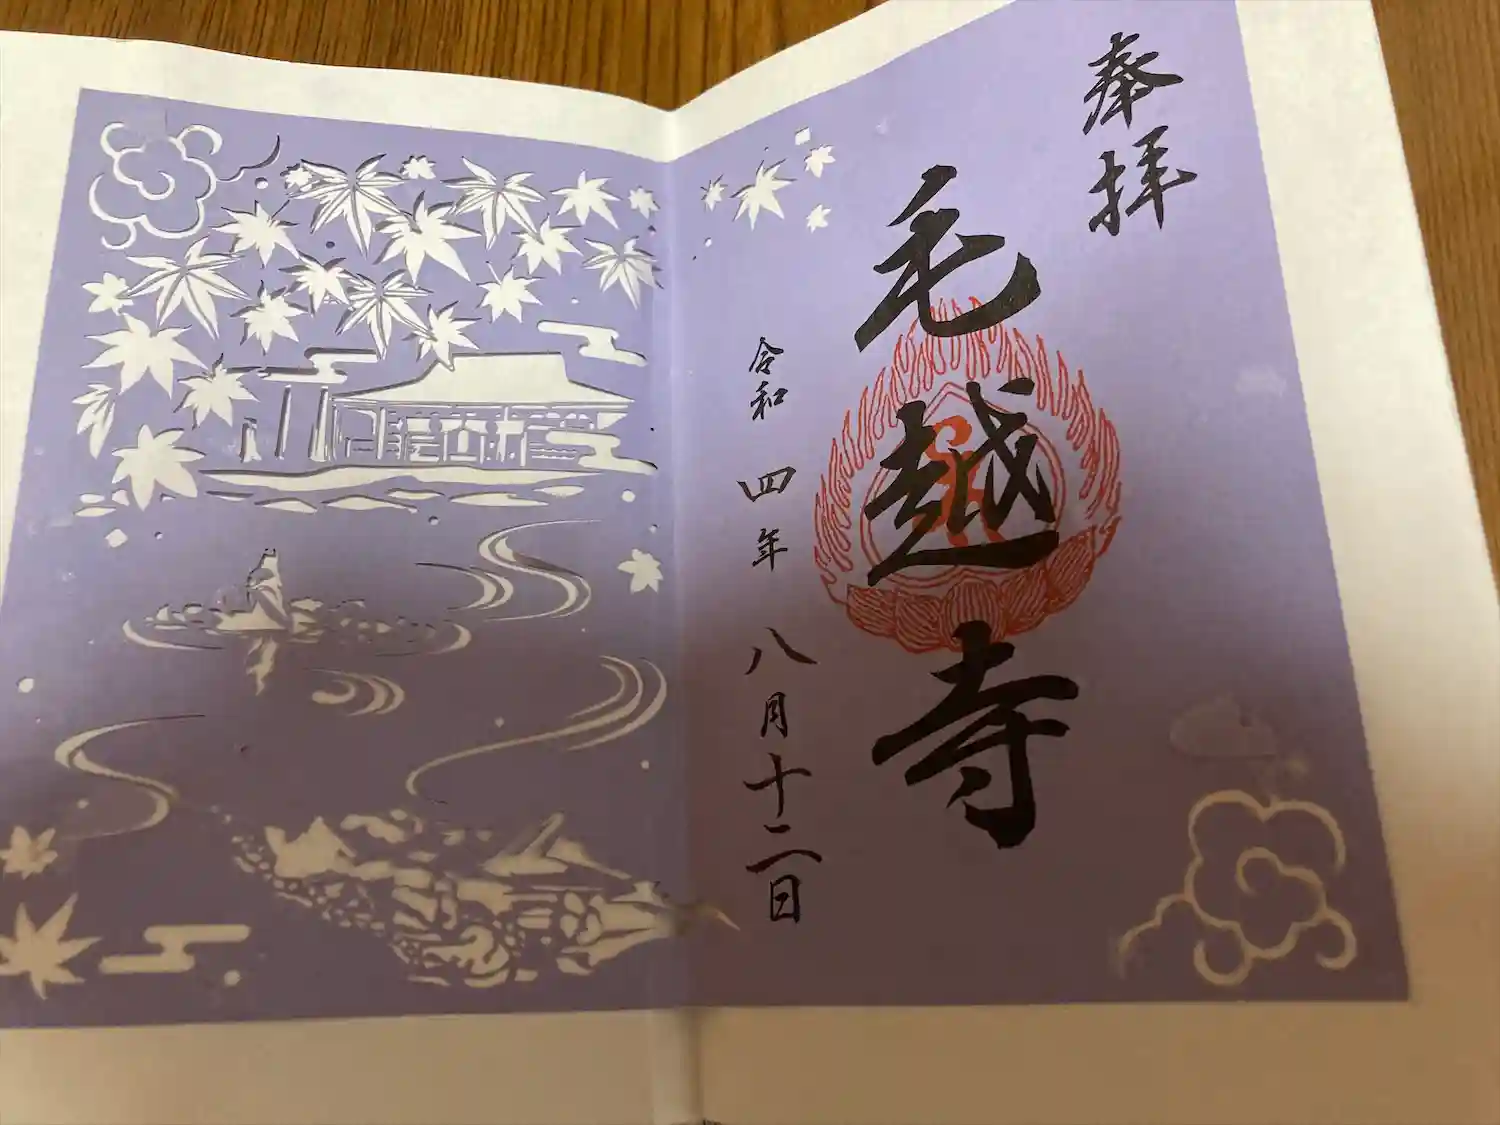 奉拝
毛越寺
令和四年八月十二日